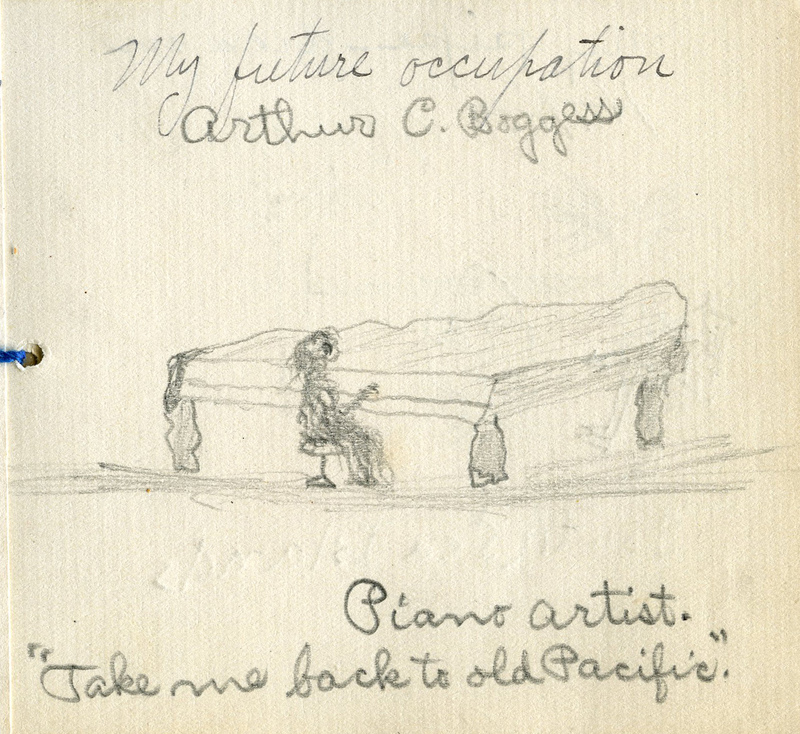 My future occupation
Arthur C. Boggess
Piano artist.
"Take me back to old Pacific."